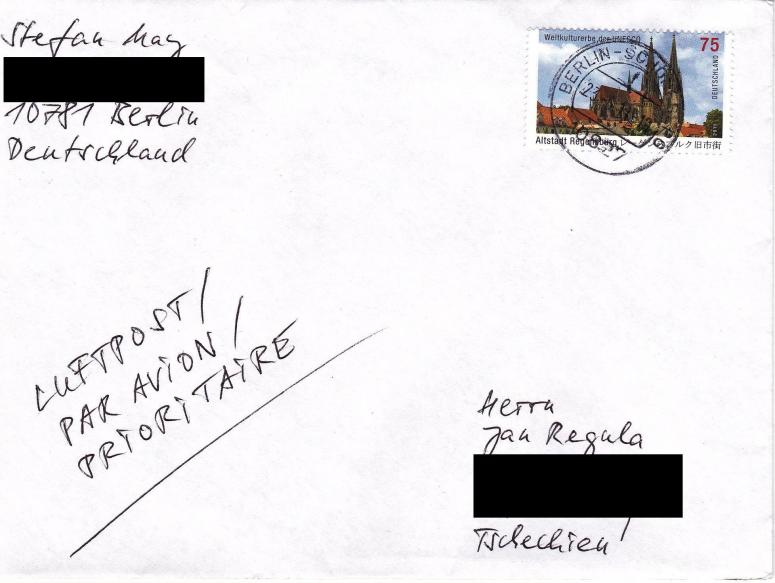 Stefan May
10781 Berlin
Deutschland
Weltkulturerbe der UNESCO
75
DEUTSCHLAND
BERLIN
Altstadt Regensburg
旧市街
LUFTPOST/
PAR AVION/
PRIORITAIRE
Herrn
Jan Regula
Tschechien